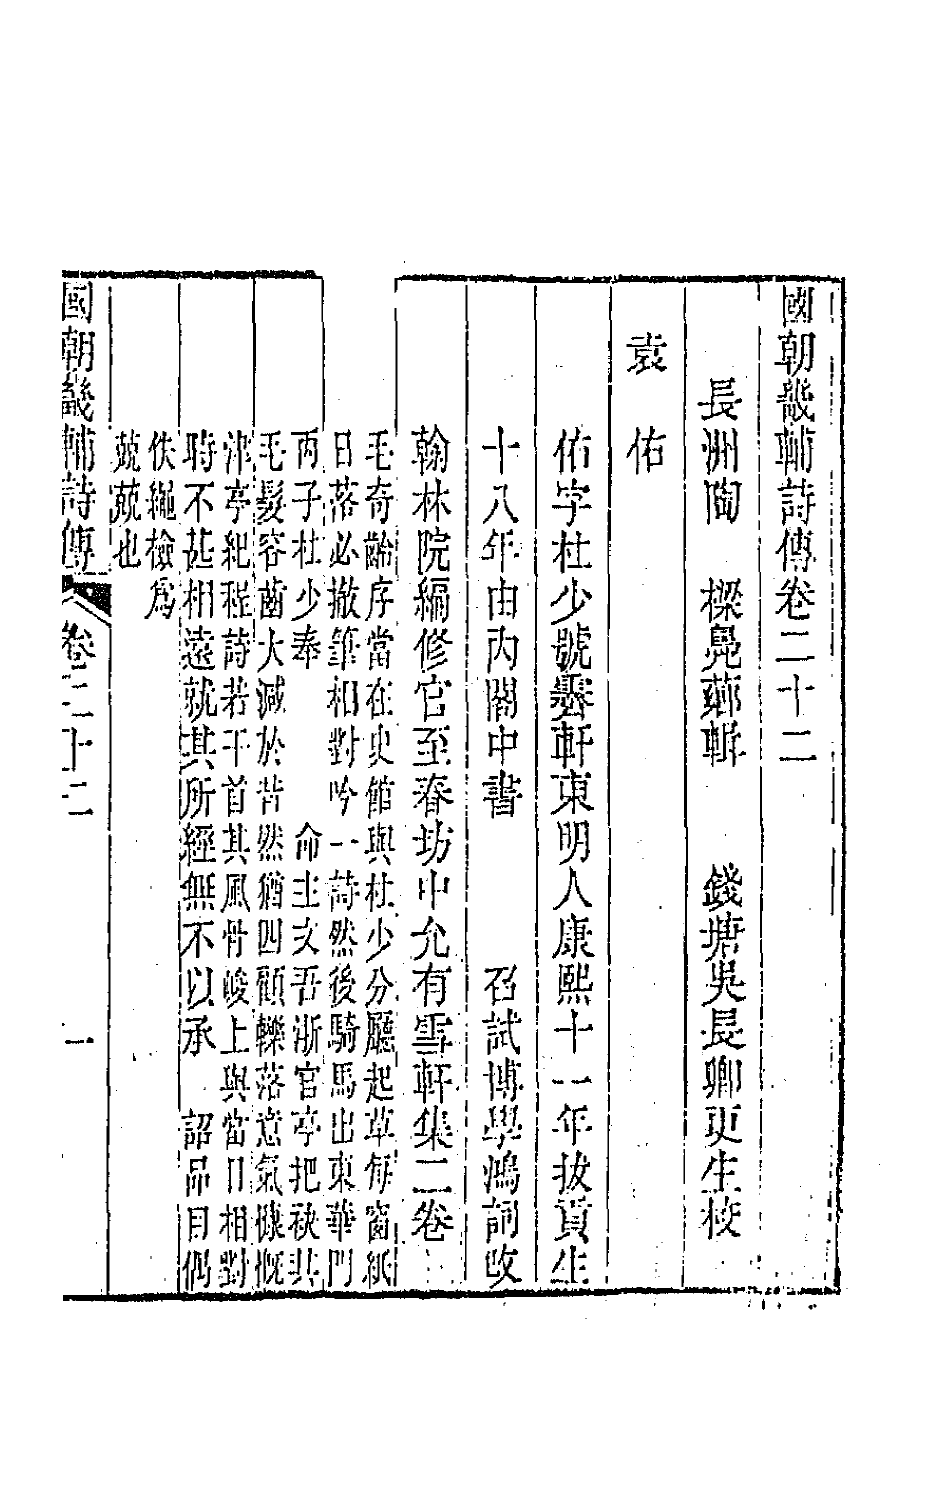 國朝畿輔詩傳卷二十二
長洲陶　樑鳧薌輯　錢塘吳長卿更生校
袁　佑
佑字杜少號霽軒東明人康熙十一年拔貢生
十八年由內閣中書　召試博學鴻詞改
翰林院編修官至春坊中允有雪軒集二卷
毛奇齡序當在史館與杜少分廳起草每窗紙
日落必撤筆相對吟一詩然後騎馬出東華門
丙子杜少奉　命主文吾浙官亭把袂共
毛髮容齒大減於昔然猶四顧轢落意氣慷慨
津亭紀程詩若干首其風骨峻上與當日相對
時不甚相遠就其所經無不以承　詔品目偶
佚繩檢為
兢兢也
國朝畿輔詩傳　卷二十二　一